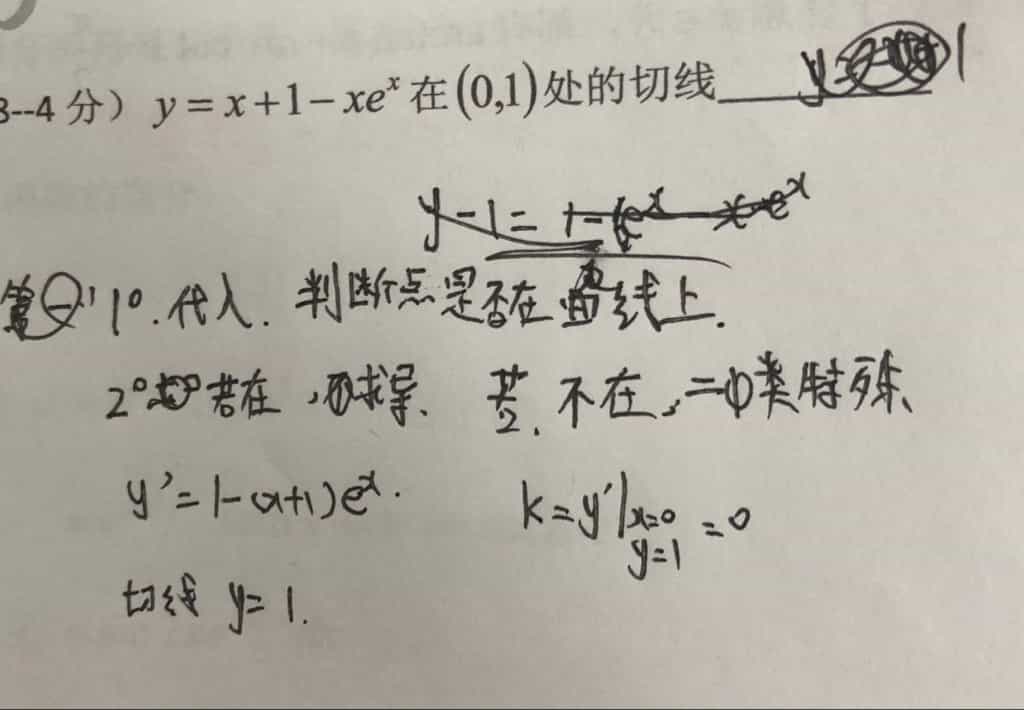 3--4 分）y = x+1- xeˣ 在 (0,1) 处的切线 y= 1
y-1= 1-
1°. 代入. 判断点是否在曲线上.
2° 若在, 求导. 若不在, 类特殊、
y'=1-(x+1)eˣ. k=y'|x=0 y=1 =0
切线 y= 1.